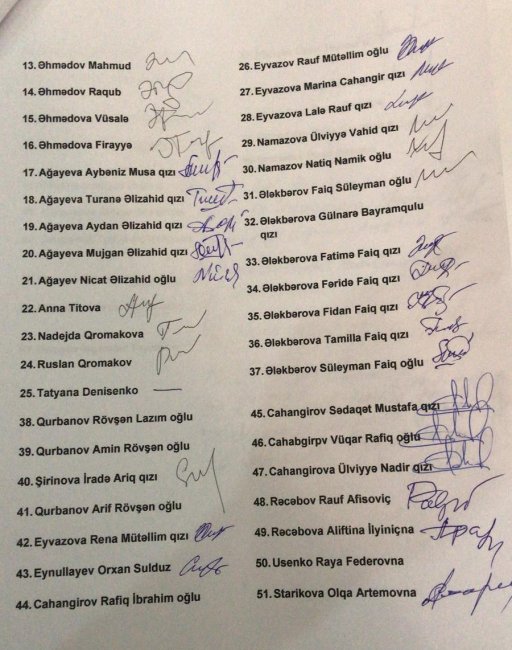 13. Əhmədov Mahmud
14. Əhmədov Raqub
15. Əhmədova Vüsalə
16. Əhmədova Firayyə
17. Ağayeva Aybəniz Musa qızı
18. Ağayeva Turanə Əlizahid qızı
19. Ağayeva Aydan Əlizahid qızı
20. Ağayeva Mujgan Əlizahid qızı
21. Ağayev Nicat Əlizahid oğlu
22. Anna Titova
23. Nadejda Qromakova
24. Ruslan Qromakov
25. Tatyana Denisenko
38. Qurbanov Rövşən Lazım oğlu
39. Qurbanov Amin Rövşən oğlu
40. Şirinova İradə Ariq qızı
41. Qurbanov Arif Rövşən oğlu
42. Eyvazova Rena Mütəllim qızı
43. Eynullayev Orxan Sulduz
44. Cahangirov Rafiq İbrahim oğlu
26. Eyvazov Rauf Mütəllim oğlu
27. Eyvazova Marina Cahangir qızı
28. Eyvazova Lalə Rauf qızı
29. Namazova Ülviyyə Vahid qızı
30. Namazov Natiq Namik oğlu
31. Ələkbərov Faiq Süleyman oğlu
32. Ələkbərova Gülnarə Bayramqulu
qızı
33. Ələkbərova Fatimə Faiq qızı
34. Ələkbərova Fəridə Faiq qızı
35. Ələkbərova Fidan Faiq qızı
36. Ələkbərova Tamilla Faiq qızı
37. Ələkbərov Süleyman Faiq oğlu
45. Cahangirov Sədaqət Mustafa qızı
46. Cahabgirpv Vüqar Rafiq oğlu
47. Cahangirova Ülviyyə Nadir qızı
48. Rəcəbov Rauf Afisoviç
49. Rəcəbova Aliftina İlyiniçna
50. Usenko Raya Federovna
51. Starikova Olqa Artemovna